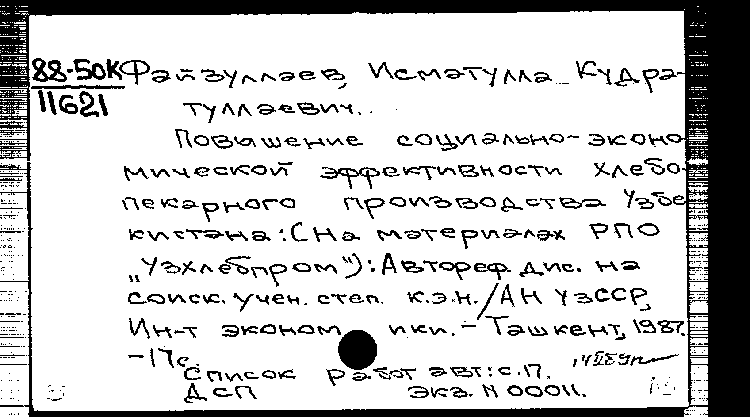 88-50К Файзуллаев, Исматулла Кудра-
11621 туллаевич.
Повышение социально-эконо
мической эффективности хлебо-
пекарного производства Узбе
кистана: (На материалах РПО
„Узхлебпром"): Автореф. дис. на
соиск. учен. степ. к.э.н. / АН УзССР,
Ин-т экономики. - Ташкент, 1987.
-17с.
Список работ авт: с.17.
ДСП Экз. N 00011.